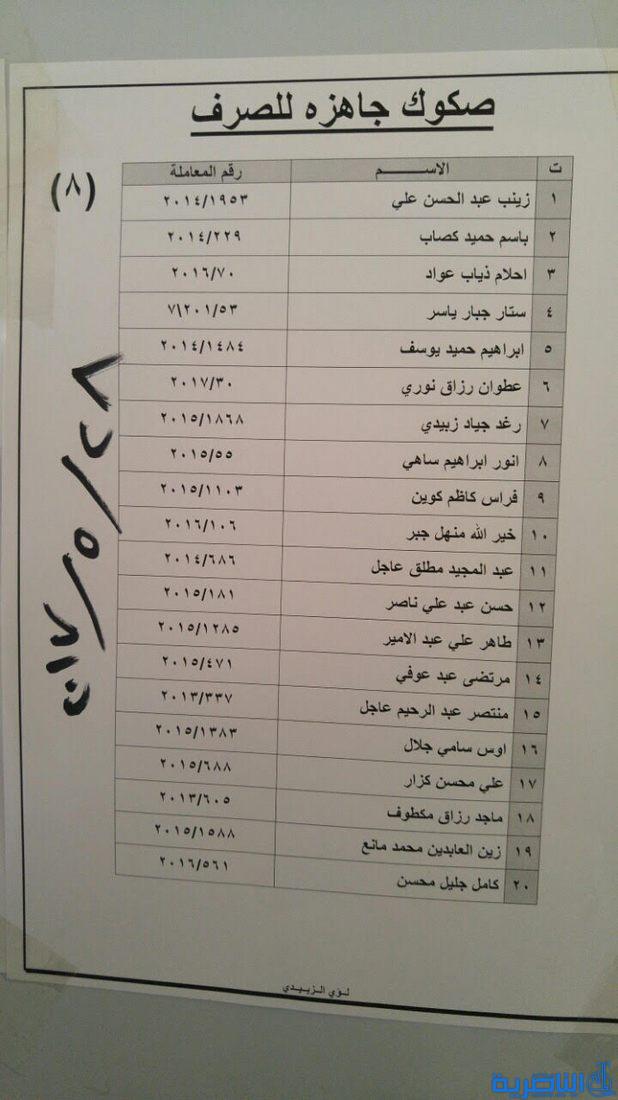 صكوك جاهزه للصرف
(٨)
ت الاســـــــم رقم المعاملة
١ زينب عبد الحسن علي ٢٠١٤/١٩٥٣
٢ باسم حميد كصاب ٢٠١٤/٢٢٩
٣ احلام ذياب عواد ٢٠١٦/٧٠
٤ ستار جبار ياسر ٧\٢٠١/٥٣
٥ ابراهيم حميد يوسف ٢٠١٤/١٤٨٤
٦ عطوان رزاق نوري ٢٠١٧/٣٠
٧ رغد جياد زبيدي ٢٠١٥/١٨٦٨
٨ انور ابراهيم ساهي ٢٠١٥/٥٥
٩ فراس كاظم كوين ٢٠١٥/١١٠٣
١٠ خير الله منهل جبر ٢٠١٦/١٠٦
١١ عبد المجيد مطلق عاجل ٢٠١٤/٦٨٦
١٢ حسن عبد علي ناصر ٢٠١٥/١٨١
١٣ طاهر علي عبد الامير ٢٠١٥/١٢٨٥
١٤ مرتضى عبد عوفي ٢٠١٥/٤٧١
١٥ منتصر عبد الرحيم عاجل ٢٠١٣/٣٣٧
١٦ اوس سامي جلال ٢٠١٥/١٣٨٣
١٧ علي محسن كزار ٢٠١٥/٦٨٨
١٨ ماجد رزاق مكطوف ٢٠١٣/٦٠٥
١٩ زين العابدين محمد مانع ٢٠١٥/١٥٨٨
٢٠ كامل جليل محسن ٢٠١٦/٥٦١
٢٠١٧/٥/٢٨
لـؤي الـزبـيـدي
الناصرية